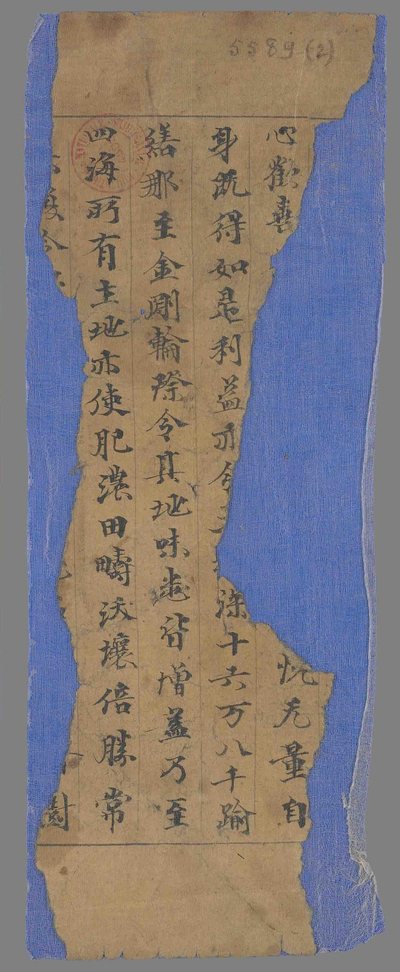 5589 (2)
心歡喜 悅无量自
身既得如是利益亦令 深十六万八千踰
繕那至金剛輪際令其地味悉皆增益乃至
四海所有土地亦使肥濃田疇沃壤倍勝常
復令 樹